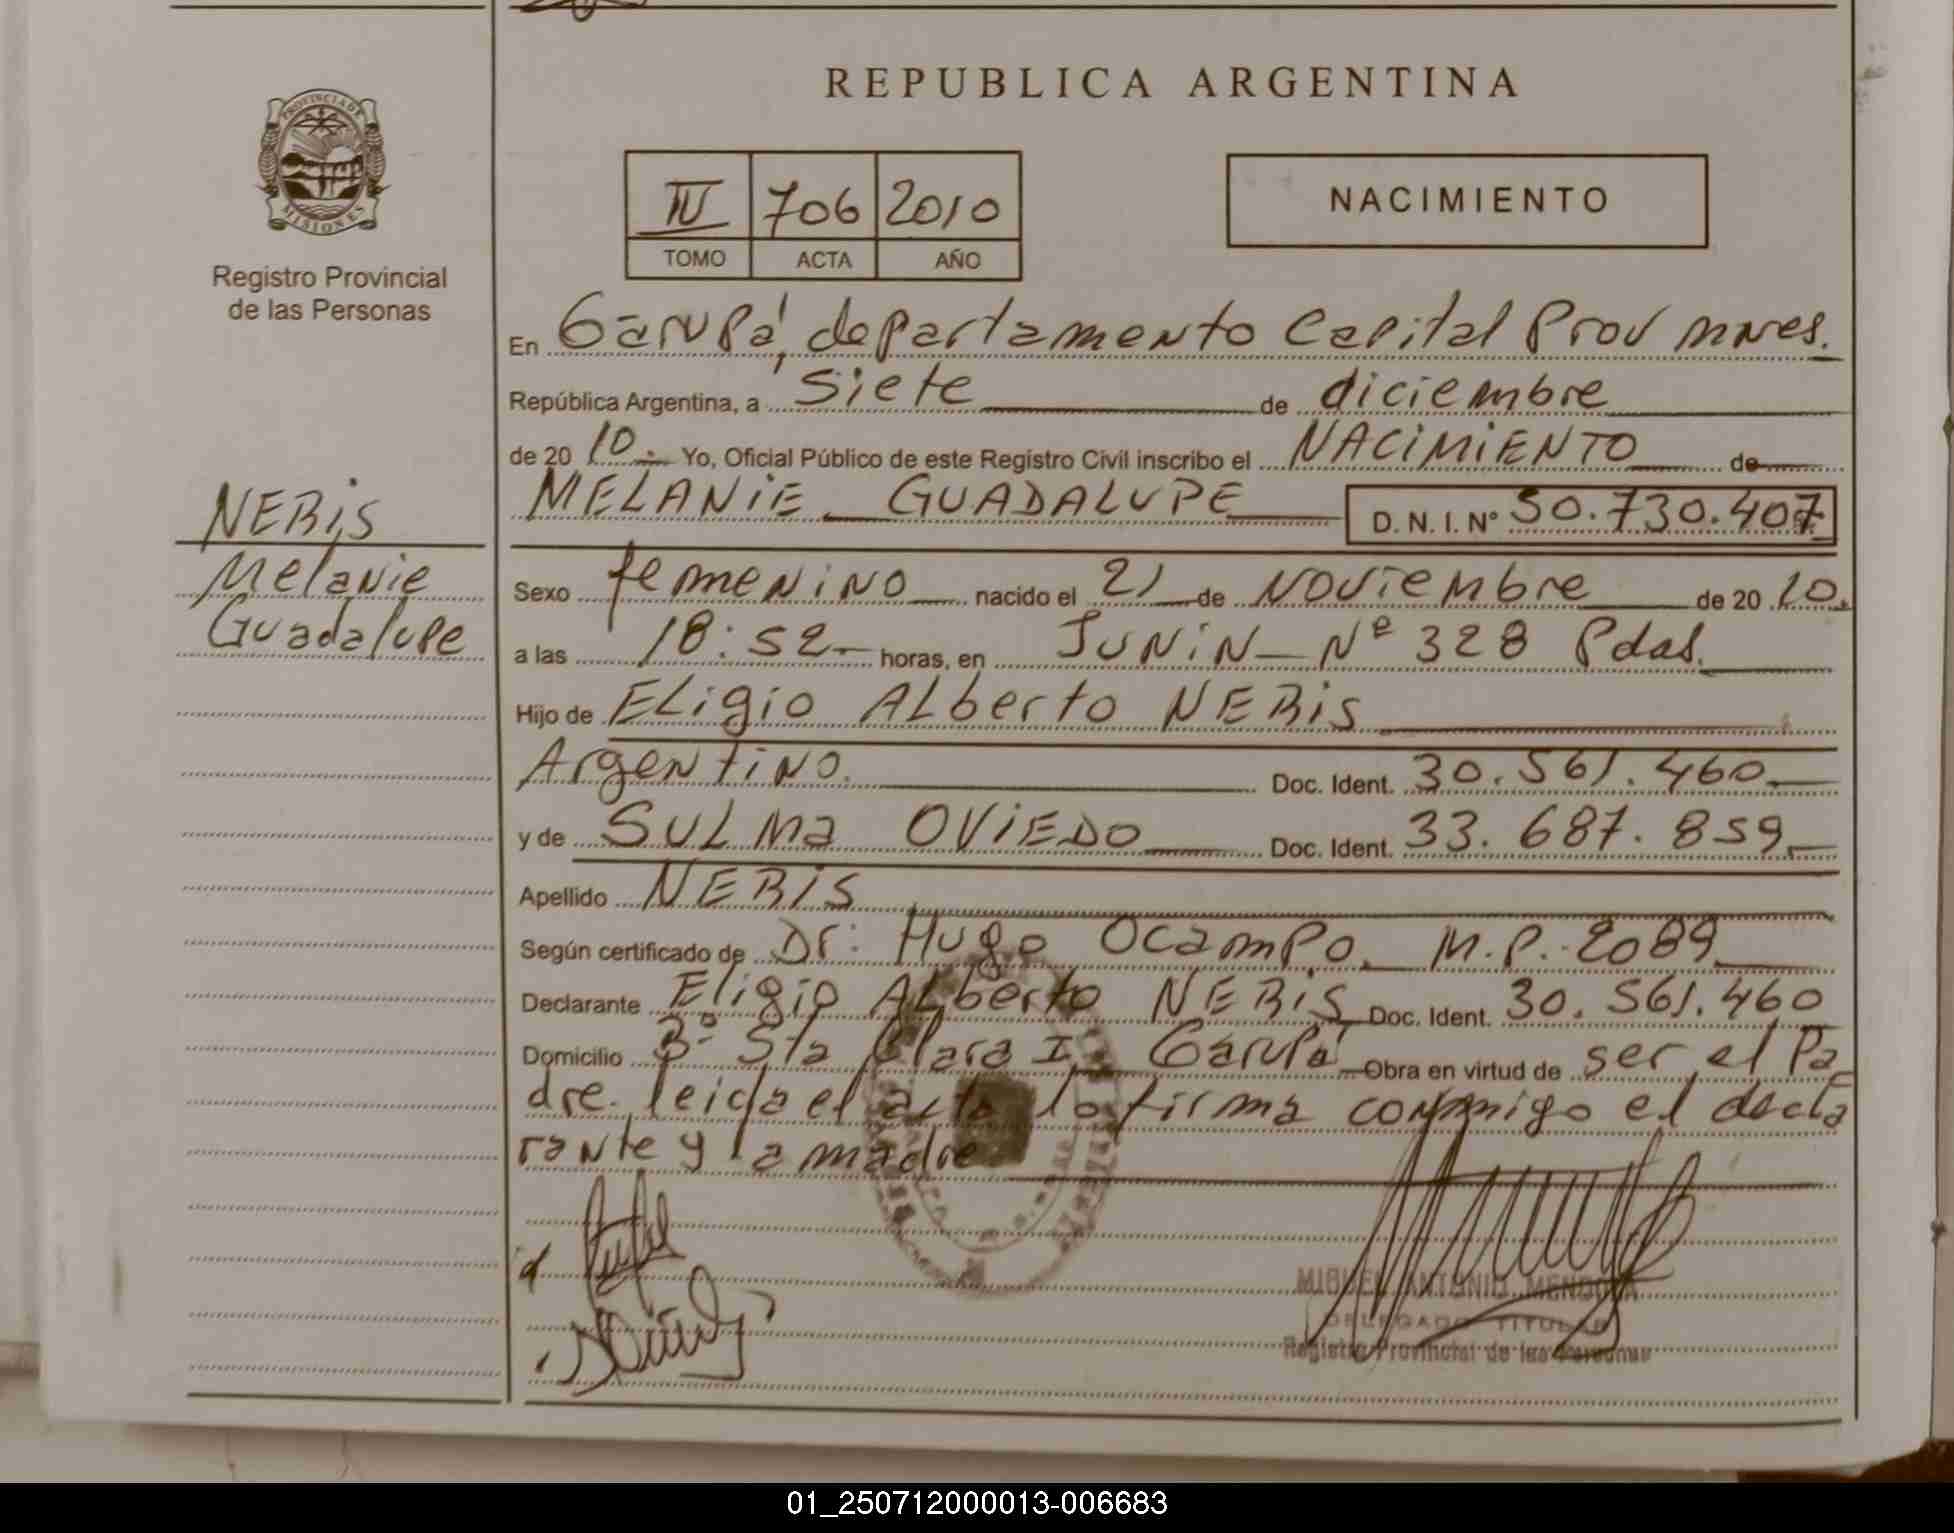 REPUBLICA ARGENTINA
PROVINCIA DE
MISIONES
Registro Provincial
de las Personas
IV 706 2010
TOMO ACTA AÑO
NACIMIENTO
En Garupá, departamento Capital Prov Mnes.
República Argentina, a siete de diciembre
de 20 10. Yo, Oficial Público de este Registro Civil inscribo el NACIMIENTO de
MELANIE GUADALUPE D. N. I. Nº 50.730.407
NERIS
Melanie
Guadalupe
Sexo femenino nacido el 21 de Noviembre de 20 10.
a las 18:52 horas, en JUNIN Nº 328 Pdas.
Hijo de Eligio Alberto NERIS
Argentino. Doc. Ident. 30.561.460
y de SULMA OVIEDO Doc. Ident. 33.687.859
Apellido NERIS
Según certificado de Dr: Hugo Ocampo. M.P. 2089
Declarante Eligio Alberto NERIS Doc. Ident. 30.561.460
Domicilio Bº Sta Clara I Garupá Obra en virtud de ser el Pa
dre. leida el acta lo firma conmigo el decla
rante y la madre
MIGUEL ANTONIO MENDOZA
DELEGADO TITULAR
Registro Provincial de las Personas
01_250712000013-006683